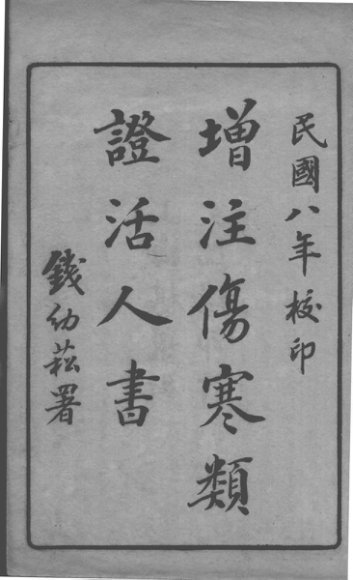 民國八年校印
增注傷寒類
證活人書
錢幼菘署